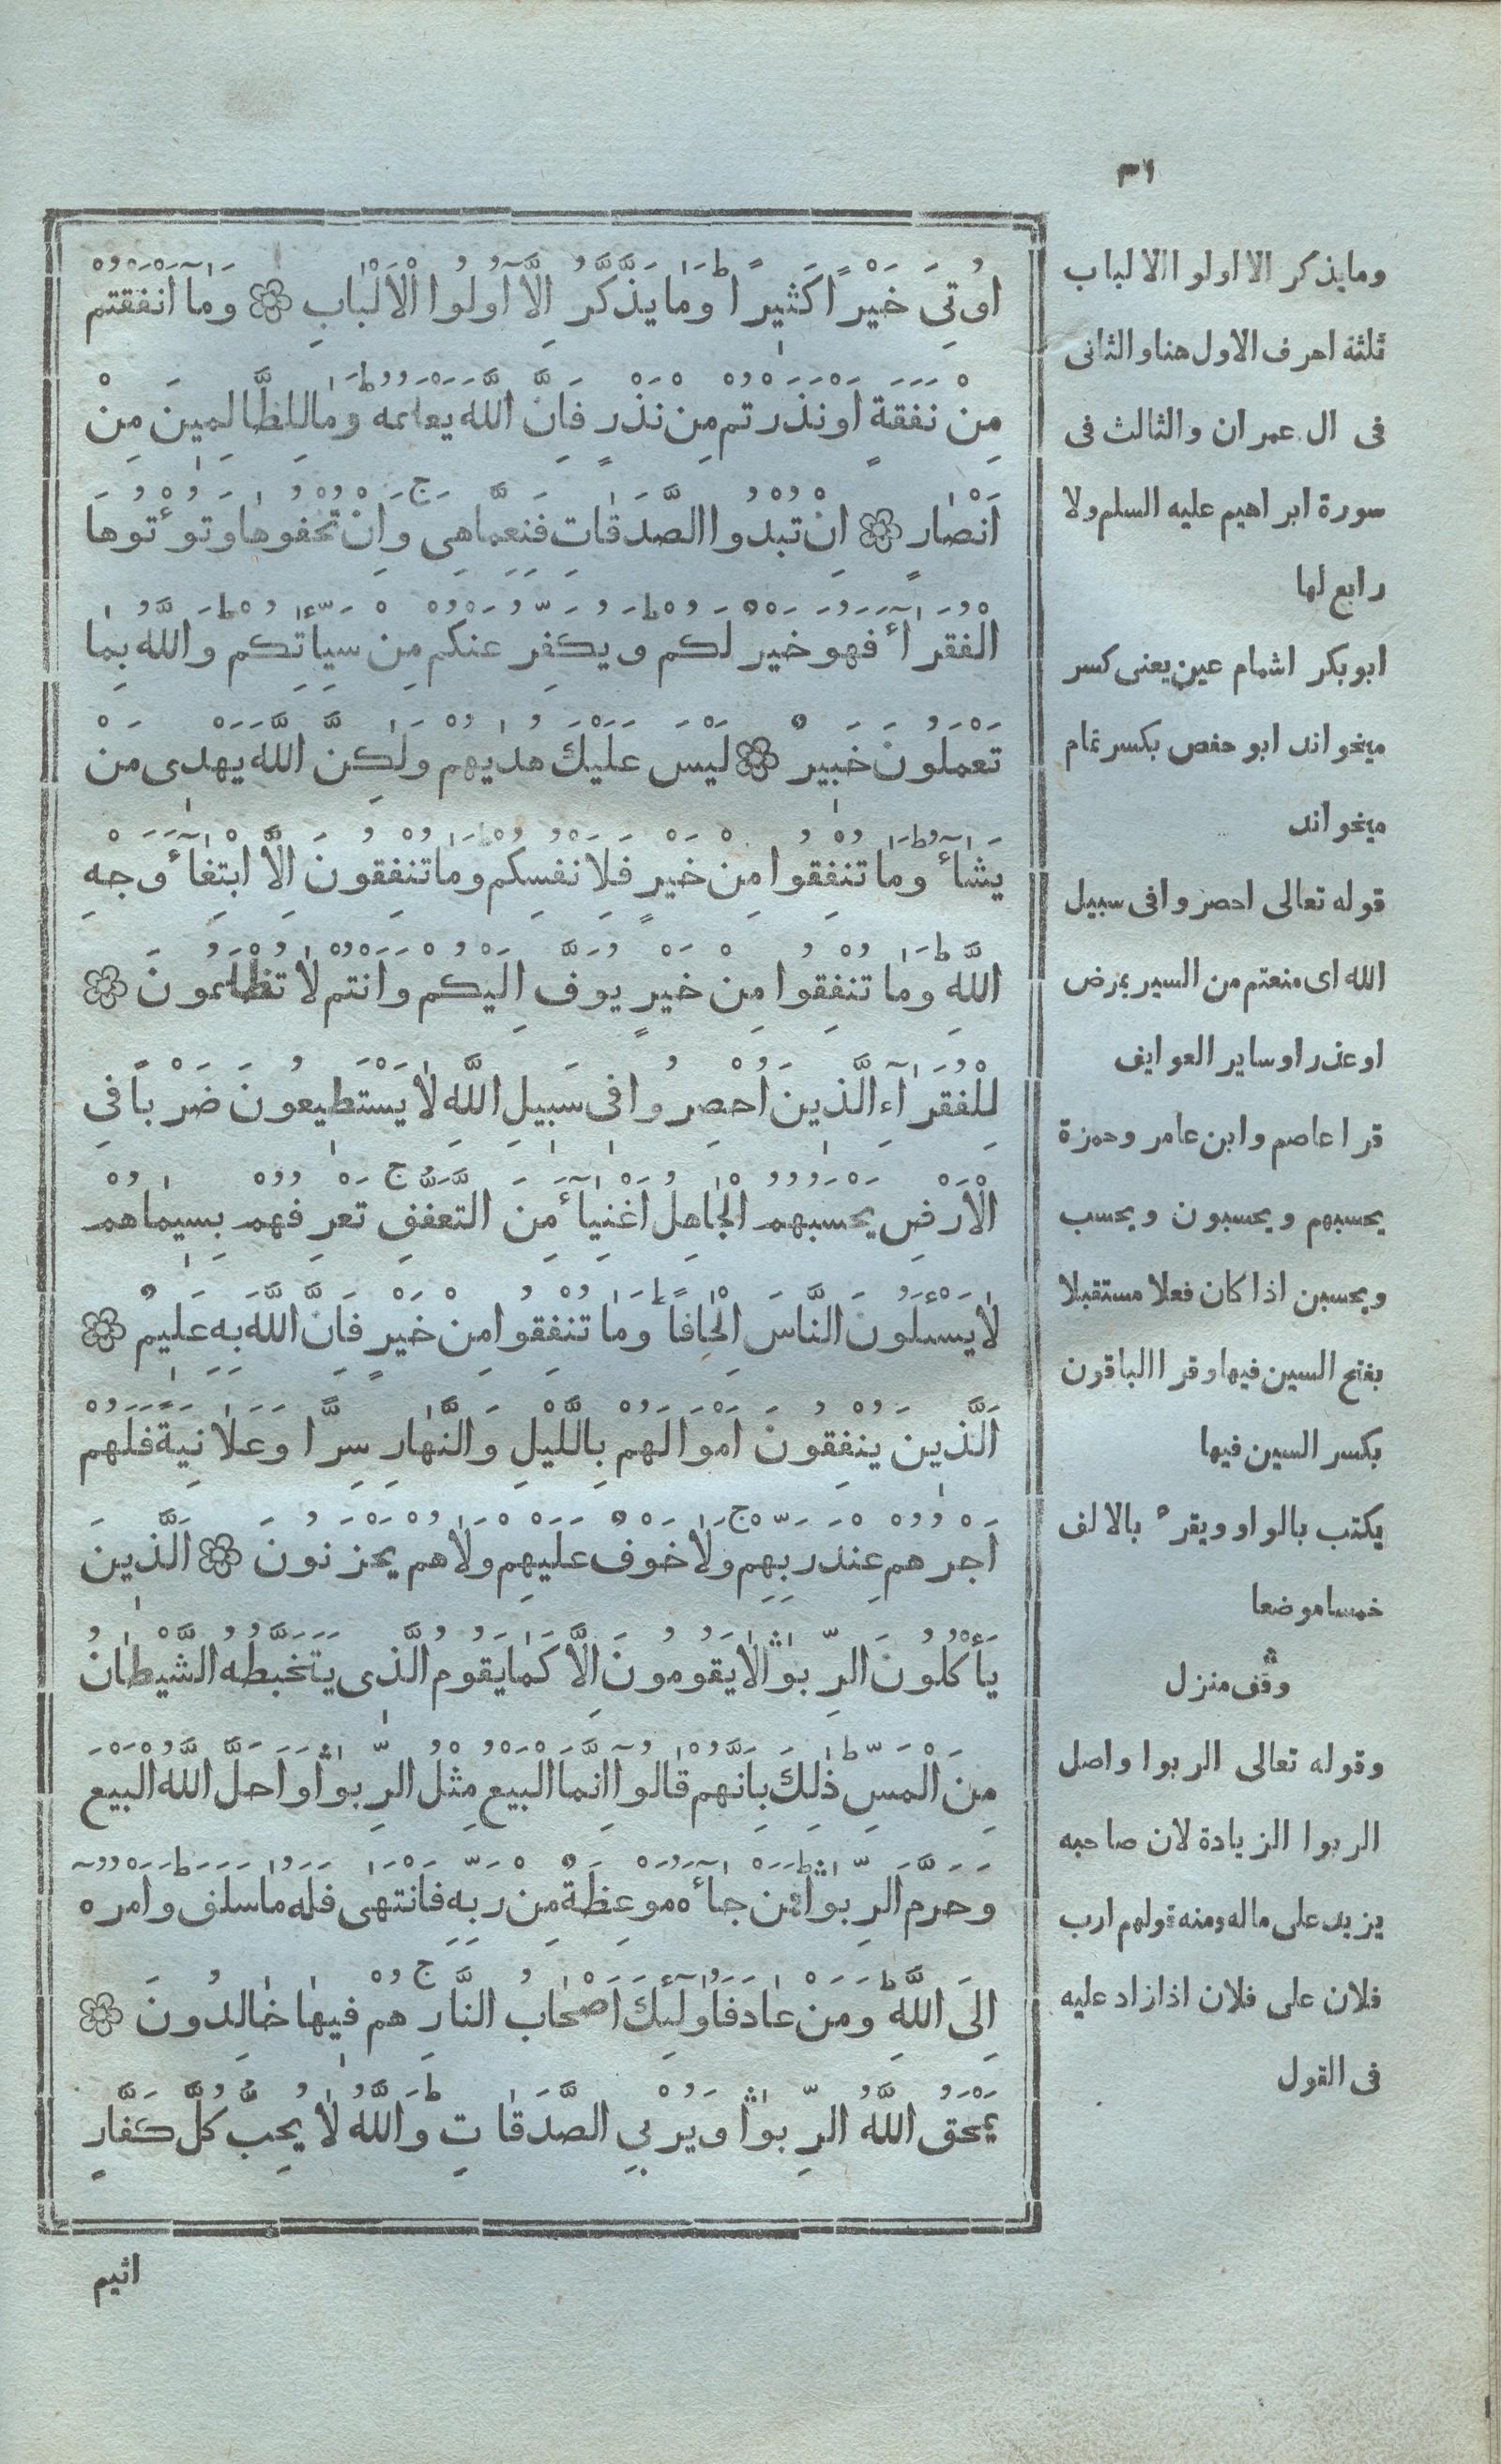 ٣١
اُوتِىَ خَيْرًا كَثِيرًا ۗ وَمٰا يَذَّكَّرُ اِلَّآ اُولُوا الْاَلْبٰابِ ۞ وَمٰآ اَنْفَقْتُمْ
مِنْ نَفَقَةٍ اَوْ نَذَرْتُمْ مِنْ نَذْرٍ فَاِنَّ اللَّهَ يَعْلَمُهُ ۗ وَمٰا لِلظَّالِمِينَ مِنْ
اَنْصٰارٍ ۞ اِنْ تُبْدُوا الصَّدَقٰاتِ فَنِعِمَّا هِىَ ج وَاِنْ تُخْفُوهٰا وَتُؤْتُوهَا
الْفُقَرٰآءَ فَهُوَ خَيْرٌ لَكُمْ ط وَيُكَفِّرُ عَنْكُمْ مِنْ سَيِّئٰاتِكُمْ ط وَاللَّهُ بِمٰا
تَعْمَلُونَ خَبِيرٌ ۞ لَيْسَ عَلَيْكَ هُدٰيهُمْ وَلٰكِنَّ اللَّهَ يَهْدِى مَنْ
يَشٰآءُ ط وَمٰا تُنْفِقُوا مِنْ خَيْرٍ فَلِاَنْفُسِكُمْ ط وَمٰا تُنْفِقُونَ اِلَّا ابْتِغٰآءَ وَجْهِ
اللَّهِ ط وَمٰا تُنْفِقُوا مِنْ خَيْرٍ يُوَفَّ اِلَيْكُمْ وَاَنْتُمْ لٰا تُظْلَمُونَ ۞
لِلْفُقَرٰآءِ الَّذِينَ اُحْصِرُوا فِى سَبِيلِ اللَّهِ لٰا يَسْتَطِيعُونَ ضَرْبًا فِى
الْاَرْضِ يَحْسَبُهُمُ الْجٰاهِلُ اَغْنِيٰآءَ مِنَ التَّعَفُّفِ ج تَعْرِفُهُمْ بِسِيمٰاهُمْ
لٰا يَسْـَٔلُونَ النَّاسَ اِلْحٰافًا ط وَمٰا تُنْفِقُوا مِنْ خَيْرٍ فَاِنَّ اللَّهَ بِهِ عَلِيمٌ ۞
اَلَّذِينَ يُنْفِقُونَ اَمْوَالَهُمْ بِاللَّيْلِ وَالنَّهٰارِ سِرًّا وَعَلٰانِيَةً فَلَهُمْ
اَجْرُهُمْ عِنْدَ رَبِّهِمْ ج وَلٰا خَوْفٌ عَلَيْهِمْ وَلٰا هُمْ يَحْزَنُونَ ۞ اَلَّذِينَ
يَأْكُلُونَ الرِّبٰوا لٰا يَقُومُونَ اِلَّا كَمٰا يَقُومُ الَّذِى يَتَخَبَّطُهُ الشَّيْطٰانُ
مِنَ الْمَسِّ ط ذٰلِكَ بِاَنَّهُمْ قٰالُوآ اِنَّمَا الْبَيْعُ مِثْلُ الرِّبٰوا وَاَحَلَّ اللَّهُ الْبَيْعَ
وَحَرَّمَ الرِّبٰوا ط فَمَنْ جٰآءَهُ مَوْعِظَةٌ مِنْ رَبِّهِ فَانْتَهٰى فَلَهُ مٰا سَلَفَ ط وَاَمْرُهُ
اِلَى اللَّهِ ط وَمَنْ عٰادَ فَاُولٰٓئِكَ اَصْحٰابُ النَّارِ ج هُمْ فِيهٰا خٰالِدُونَ ۞
يَمْحَقُ اللَّهُ الرِّبٰوا وَيُرْبِى الصَّدَقٰاتِ ط وَاللَّهُ لٰا يُحِبُّ كُلَّ كَفَّارٍ
اثيم
ومايذكر الا اولوا الالباب
ثلثة احرف الاول هنا والثانى
فى ال عمران والثالث فى
سورة ابراهيم عليه السلم ولا
رابع لها
ابوبكر اشمام عين يعنى كسر
ميخواند ابو حفص بكسر تمام
ميخواند
قوله تعالى احصروا فى سبيل
الله اى منعتم من السير بمرض
او عذر اوساير العوايق
قرا عاصم وابن عامر وحمزة
يحسبهم ويحسبون ويحسب
ويحسبن اذا كان فعلا مستقبلا
بفتح السين فيها وقرا الباقون
بكسر السين فيها
يكتب بالواو ويقرء بالالف
خمسا موضعا
وقف منزل
وقوله تعالى الربوا واصل
الربوا الزيادة لان صاحبه
يزيد على ماله ومنه قولهم ارب
فلان على فلان اذا زاد عليه
فى القول